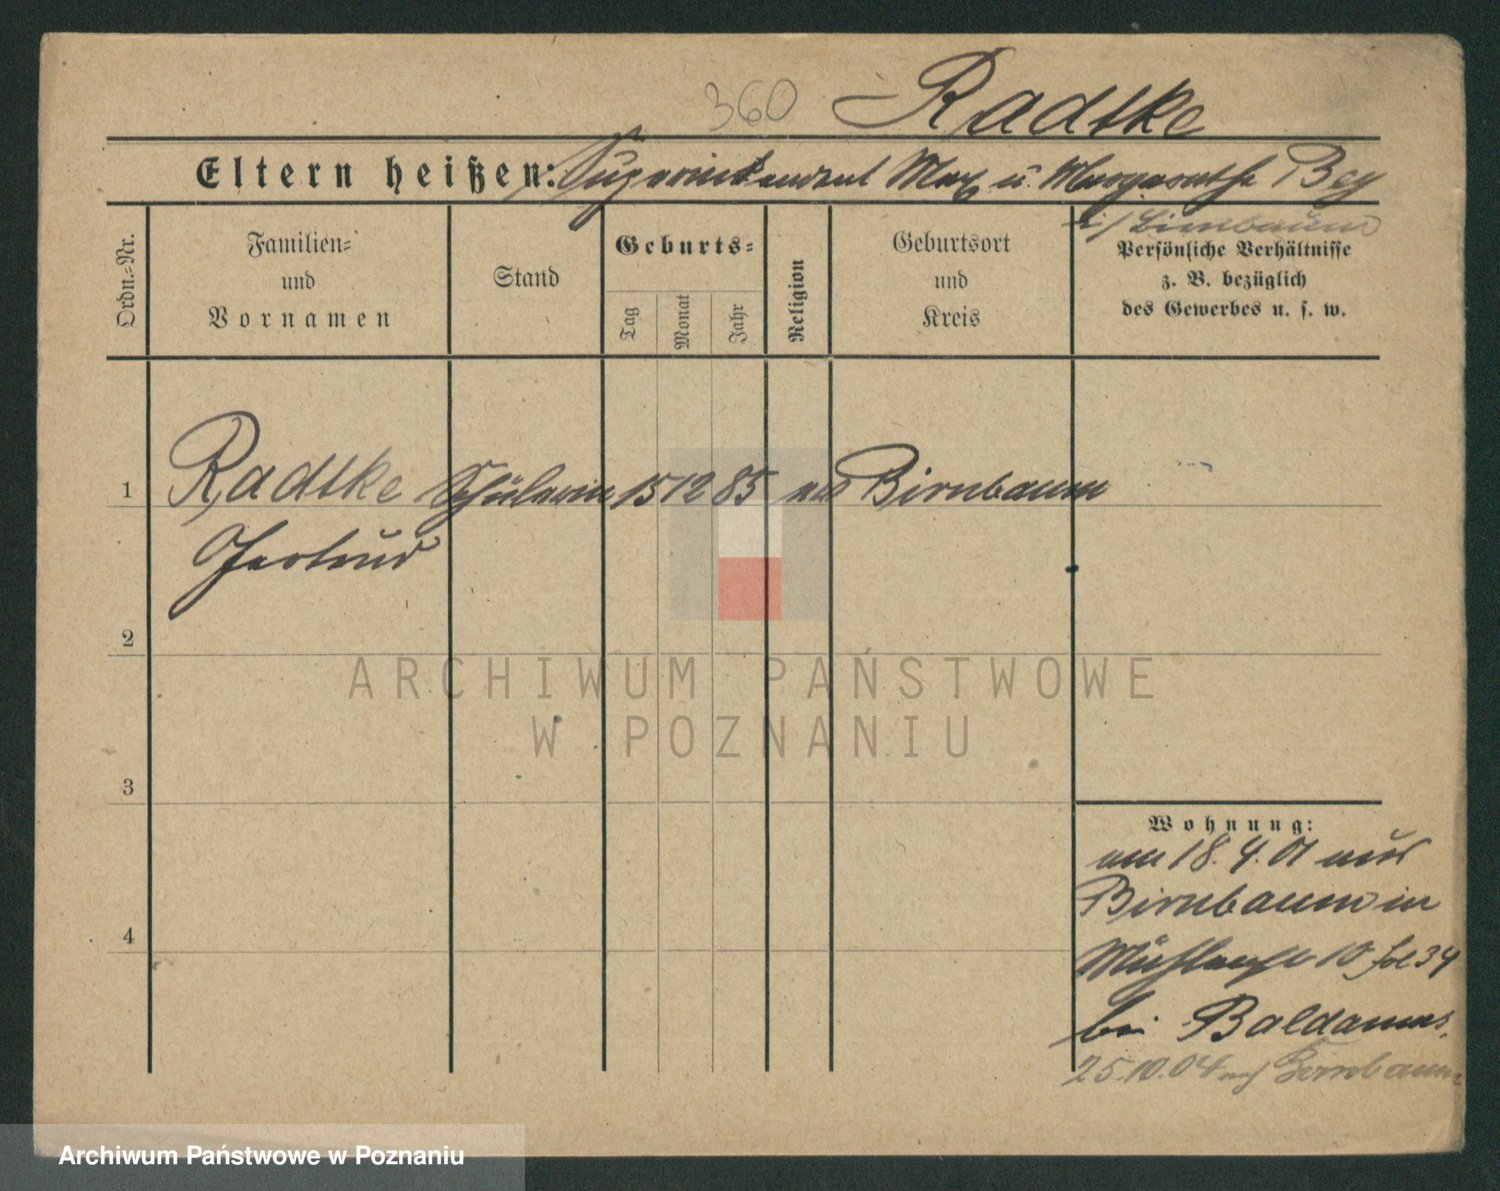 360 Radtke
Eltern heißen: Superintendent Max u. Margarethe Bey
i/ Birnbaum
Ordn.-Nr.
Familien-
und
Vornamen
Stand
Geburts-
Tag
Monat
Jahr
Religion
Geburtsort
und
Kreis
Persönliche Verhältnisse
z. B. bezüglich
des Gewerbes u. s. w.
1 Radtke Schülerin 15 12 85 ev Birnbaum
Gertrud
2
3
4
Wohnung:
am 18.4.01 aus
Birnbaum in
10 34
bei Baldamus.
25.10.04 nach Birnbaum
ARCHIWUM PAŃSTWOWE
W POZNANIU
Archiwum Państwowe w Poznaniu